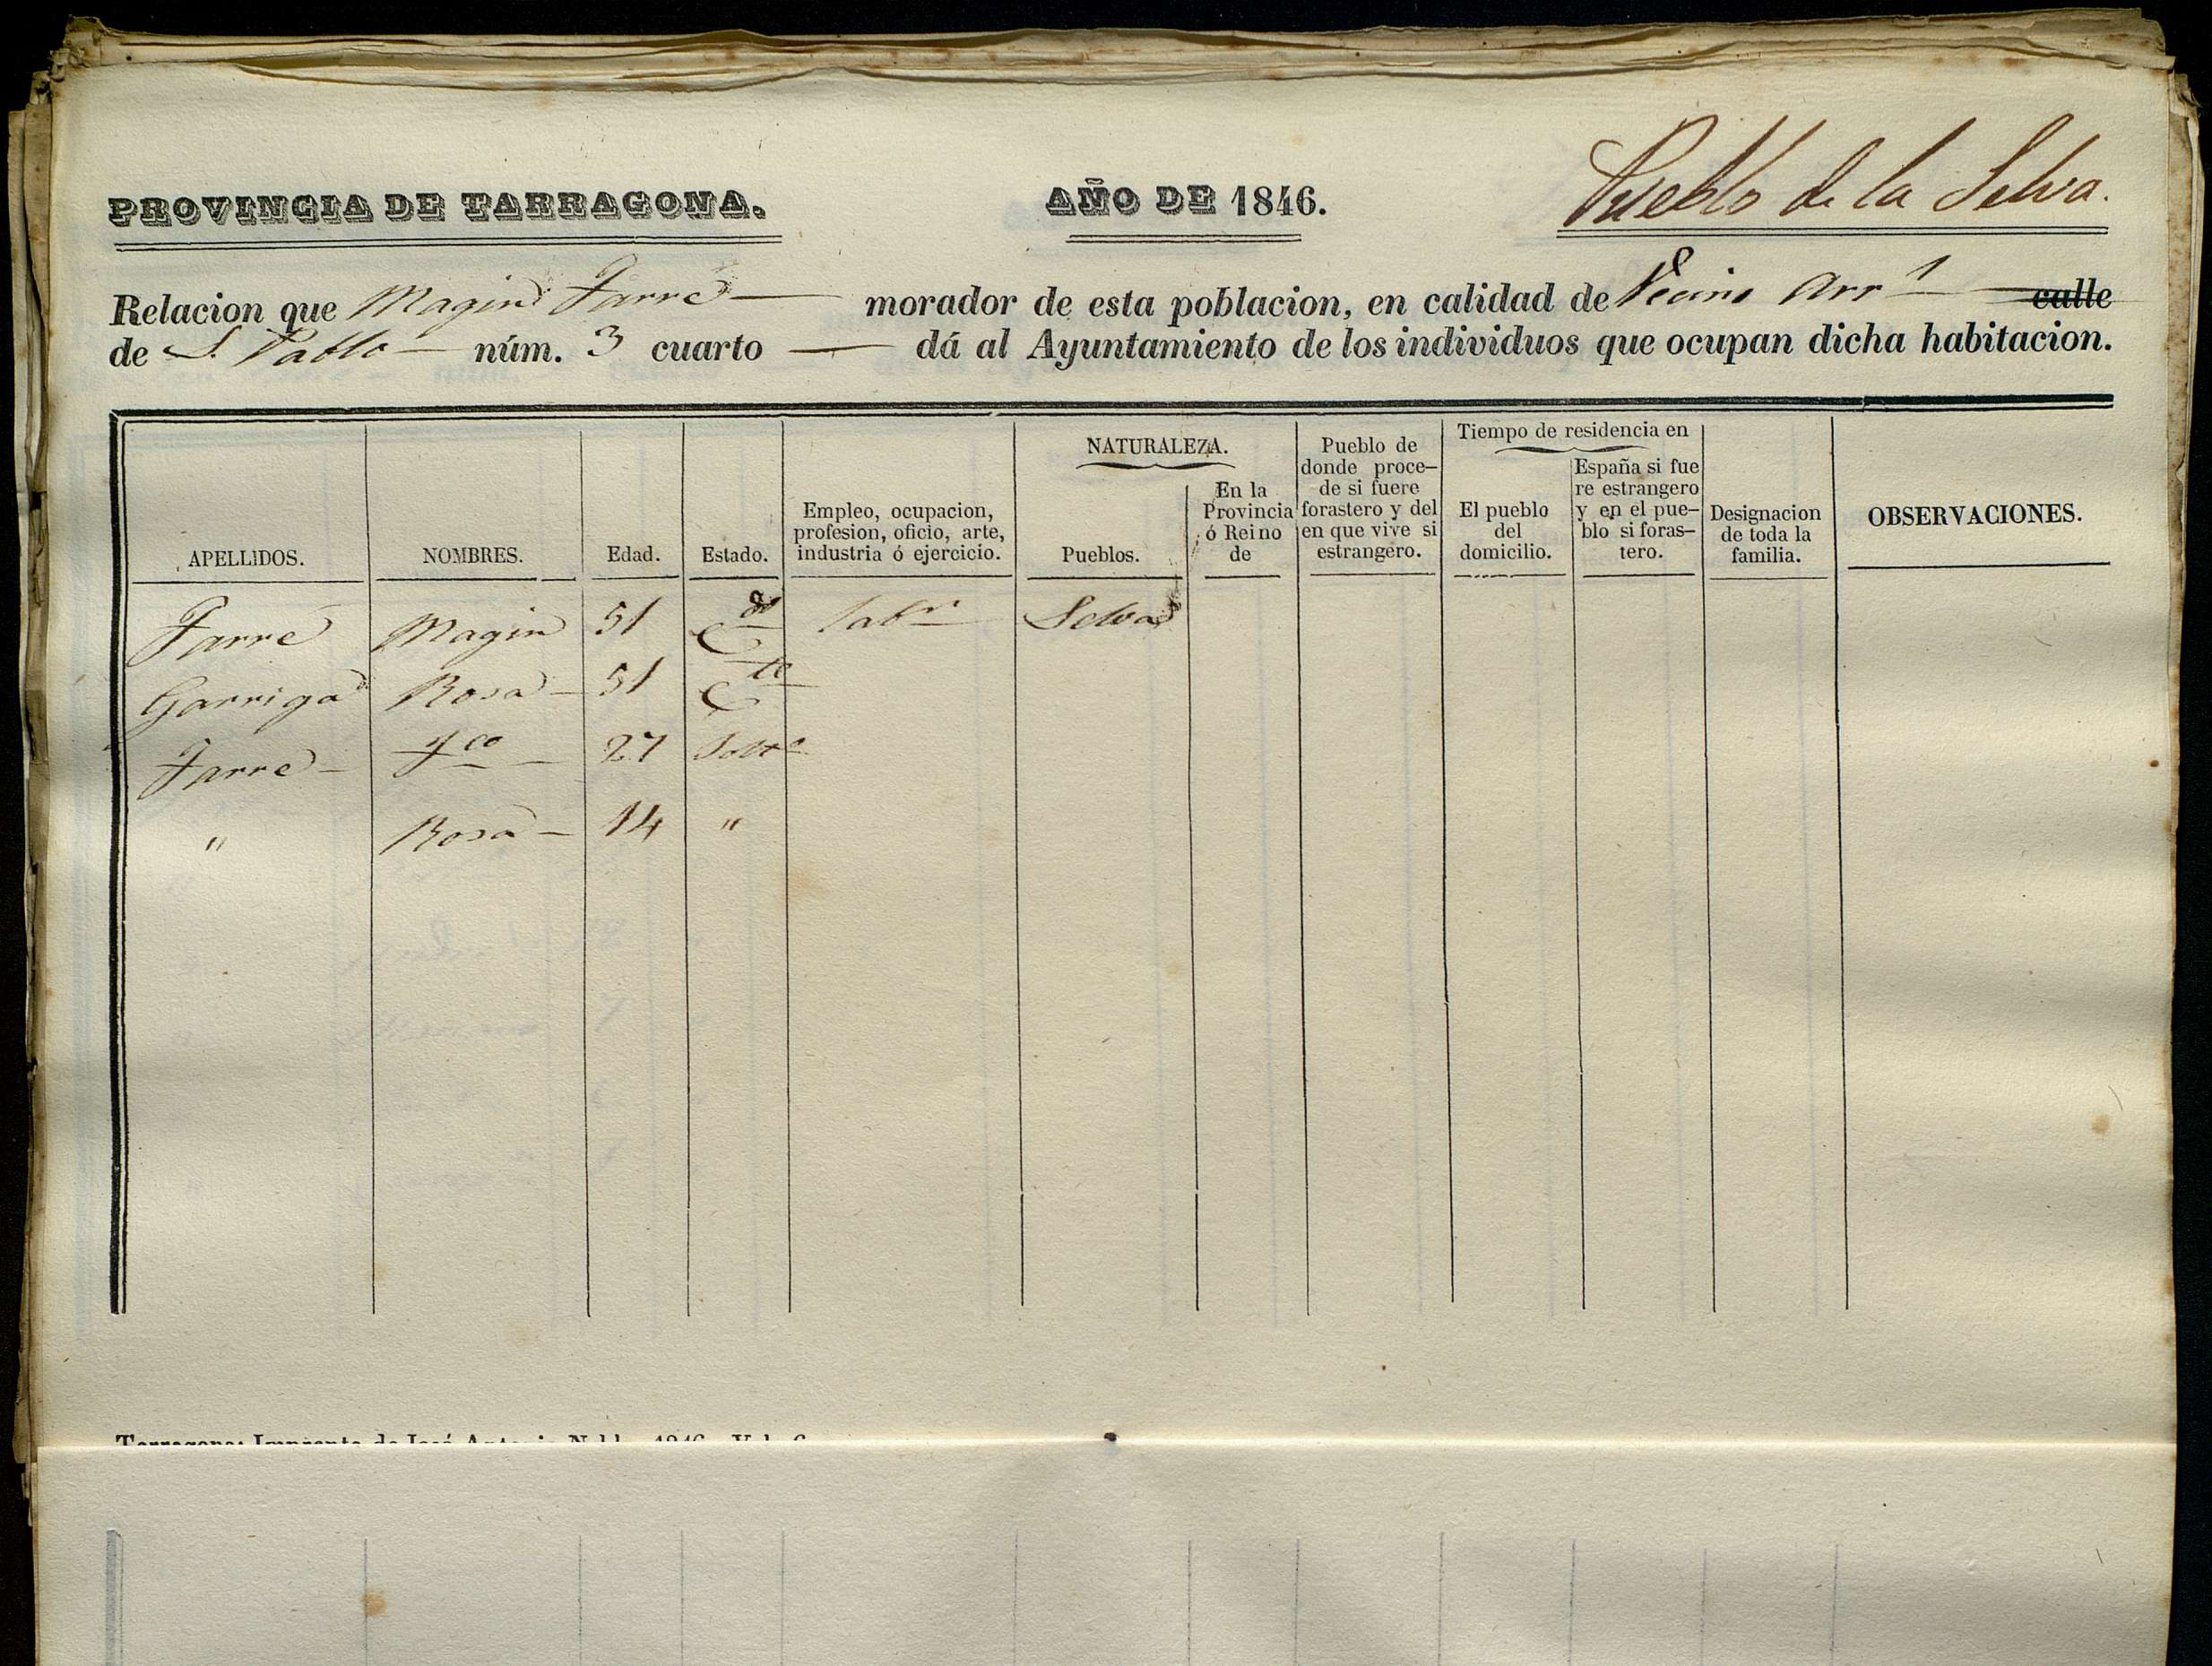 PROVINCIA DE TARRAGONA. AÑO DE 1846. Pueblo de la Selva.
Relacion que Magin Farré morador de esta poblacion, en calidad de Vecino Arr.l calle
de S. Pablo núm. 3 cuarto — dá al Ayuntamiento de los individuos que ocupan dicha habitacion.
APELLIDOS.
NOMBRES.
Edad.
Estado.
Empleo, ocupacion,
profesion, oficio, arte,
industria ó ejercicio.
NATURALEZA.
Pueblos.
En la
Provincia
ó Reino
de
Pueblo de
donde proce-
de si fuere
forastero y del
en que vive si
estrangero.
Tiempo de residencia en
El pueblo
del
domicilio.
España si fue
re estrangero
y en el pue-
blo si foras-
tero.
Designacion
de toda la
familia.
OBSERVACIONES.
Farré Magin 51 C.do labr Selva
Garriga Rosa 51 C.te
Farré Fco 27 Solt.o
" Rosa 14 "